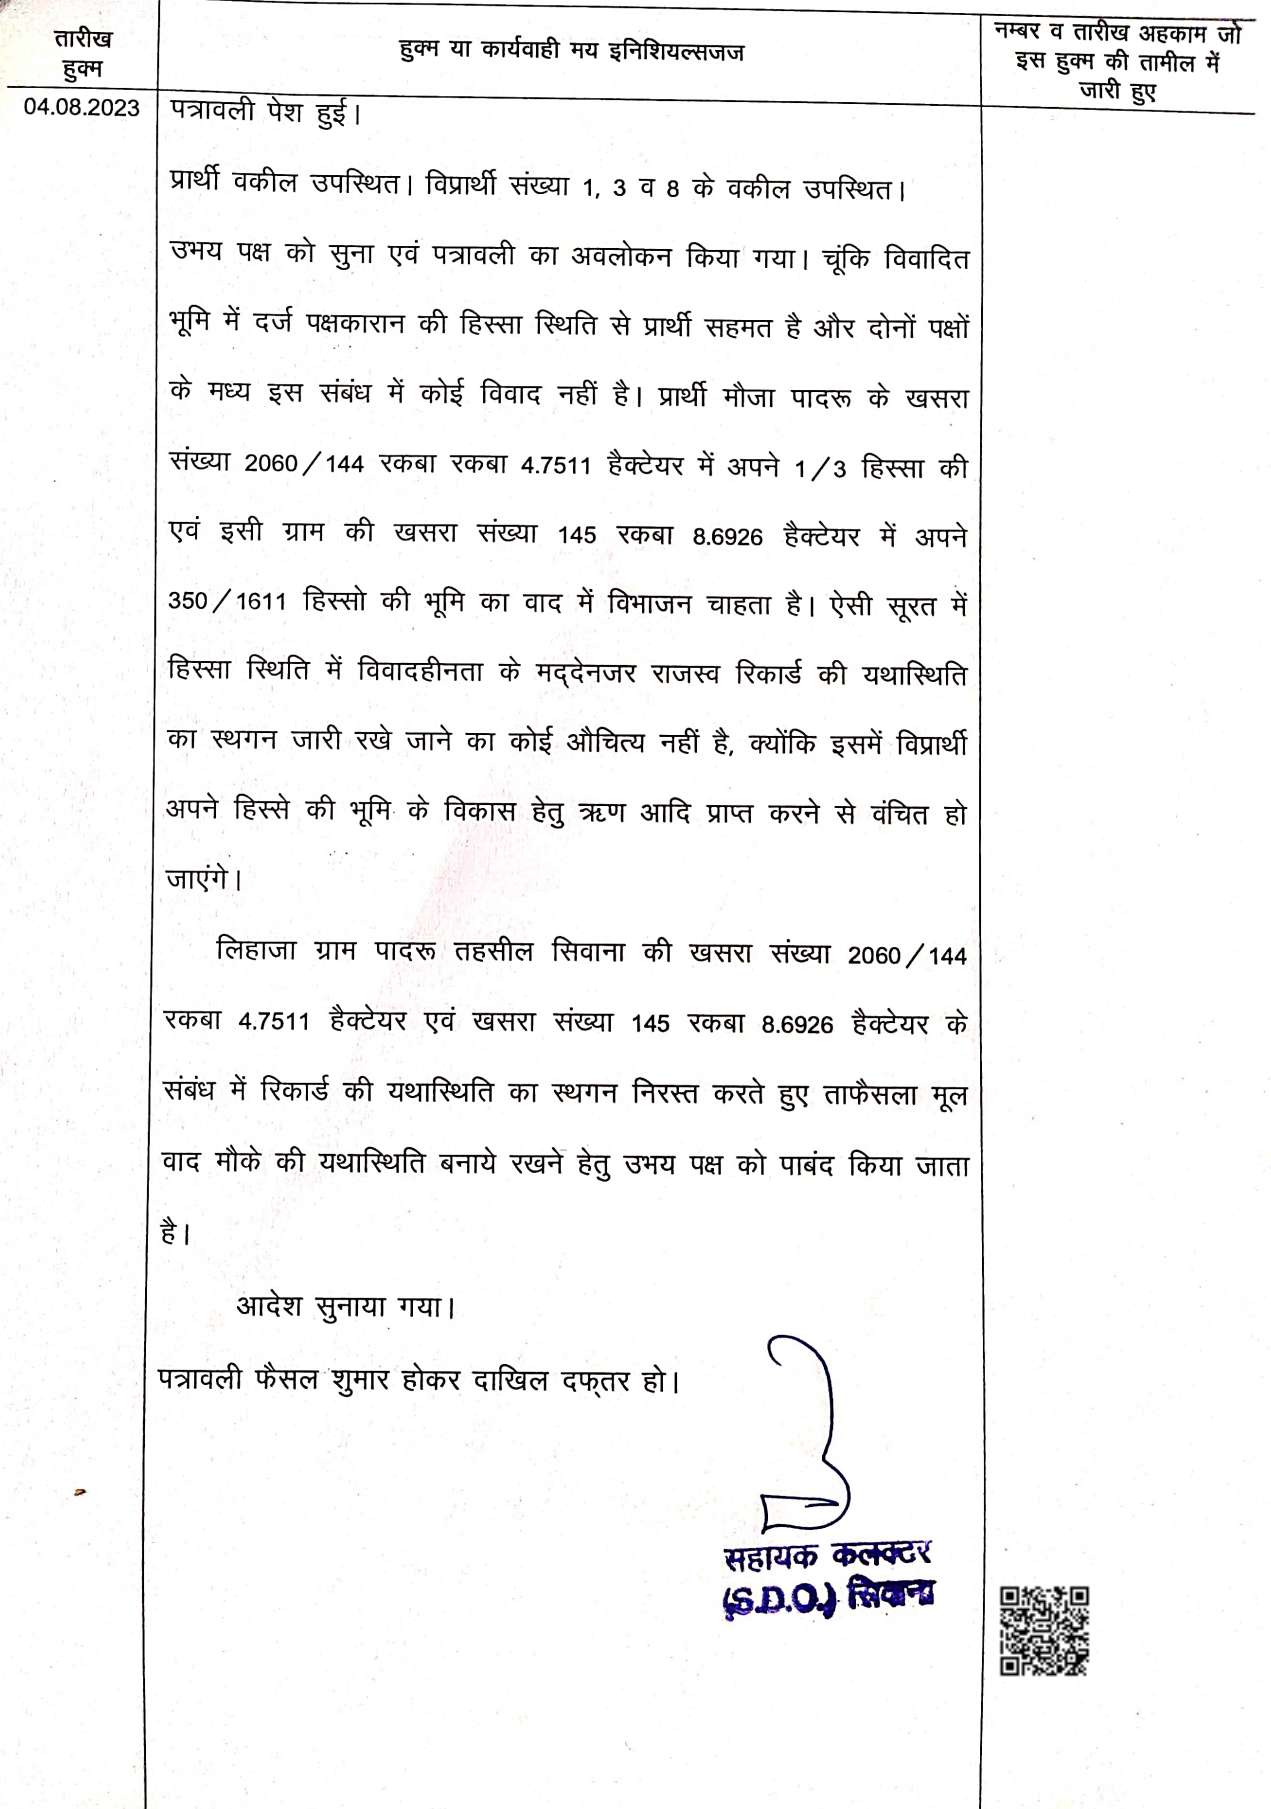 तारीख
हुक्म
हुक्म या कार्यवाही मय इनिशियल्सजज
नम्बर व तारीख अहकाम जो
इस हुक्म की तामील में
जारी हुए
04.08.2023
पत्रावली पेश हुई।
प्रार्थी वकील उपस्थित। विप्रार्थी संख्या 1, 3 व 8 के वकील उपस्थित।
उभय पक्ष को सुना एवं पत्रावली का अवलोकन किया गया। चूंकि विवादित
भूमि में दर्ज पक्षकारान की हिस्सा स्थिति से प्रार्थी सहमत है और दोनों पक्षों
के मध्य इस संबंध में कोई विवाद नहीं है। प्रार्थी मौजा पादरू के खसरा
संख्या 2060/144 रकबा रकबा 4.7511 हैक्टेयर में अपने 1/3 हिस्सा की
एवं इसी ग्राम की खसरा संख्या 145 रकबा 8.6926 हैक्टेयर में अपने
350/1611 हिस्सो की भूमि का वाद में विभाजन चाहता है। ऐसी सूरत में
हिस्सा स्थिति में विवादहीनता के मद्‌देनजर राजस्व रिकार्ड की यथास्थिति
का स्थगन जारी रखे जाने का कोई औचित्य नहीं है, क्योंकि इसमें विप्रार्थी
अपने हिस्से की भूमि के विकास हेतु ऋण आदि प्राप्त करने से वंचित हो
जाएंगे।
लिहाजा ग्राम पादरू तहसील सिवाना की खसरा संख्या 2060/144
रकबा 4.7511 हैक्टेयर एवं खसरा संख्या 145 रकबा 8.6926 हैक्टेयर के
संबंध में रिकार्ड की यथास्थिति का स्थगन निरस्त करते हुए ताफैसला मूल
वाद मौके की यथास्थिति बनाये रखने हेतु उभय पक्ष को पाबंद किया जाता
है।
आदेश सुनाया गया।
पत्रावली फैसल शुमार होकर दाखिल दफ्‌तर हो।
सहायक कलक्टर
(S.D.O.) सिवाना